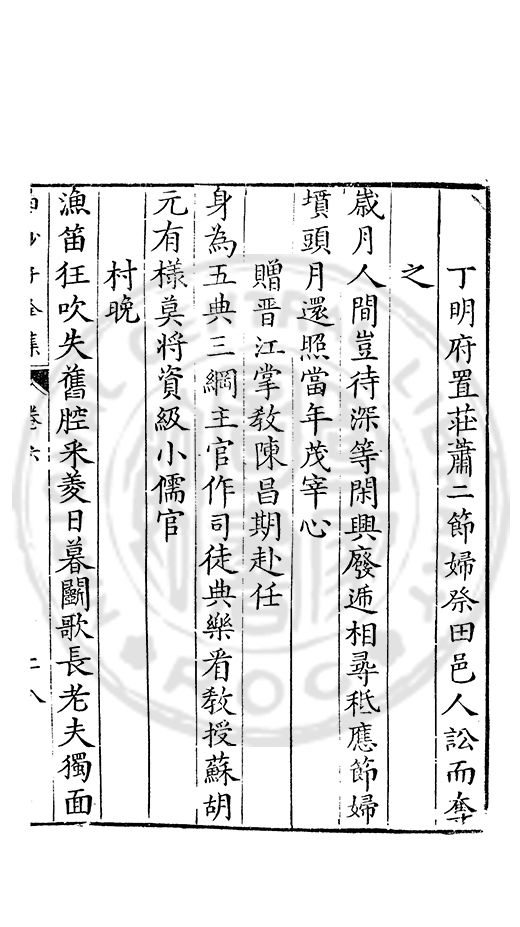 丁明府置莊蕭二節婦祭田邑人訟而奪
之
歲月人間豈待深等閑興廢遞相尋秪應節婦
墳頭月還照當年茂宰心
贈晋江掌教陳昌期赴任
身為五典三綱主官作司徒典樂看教授蘇胡
元有樣莫將資級小儒官
村晚
漁笛狂吹失舊腔采菱日暮鬭歌長老夫獨面
卷六
二八